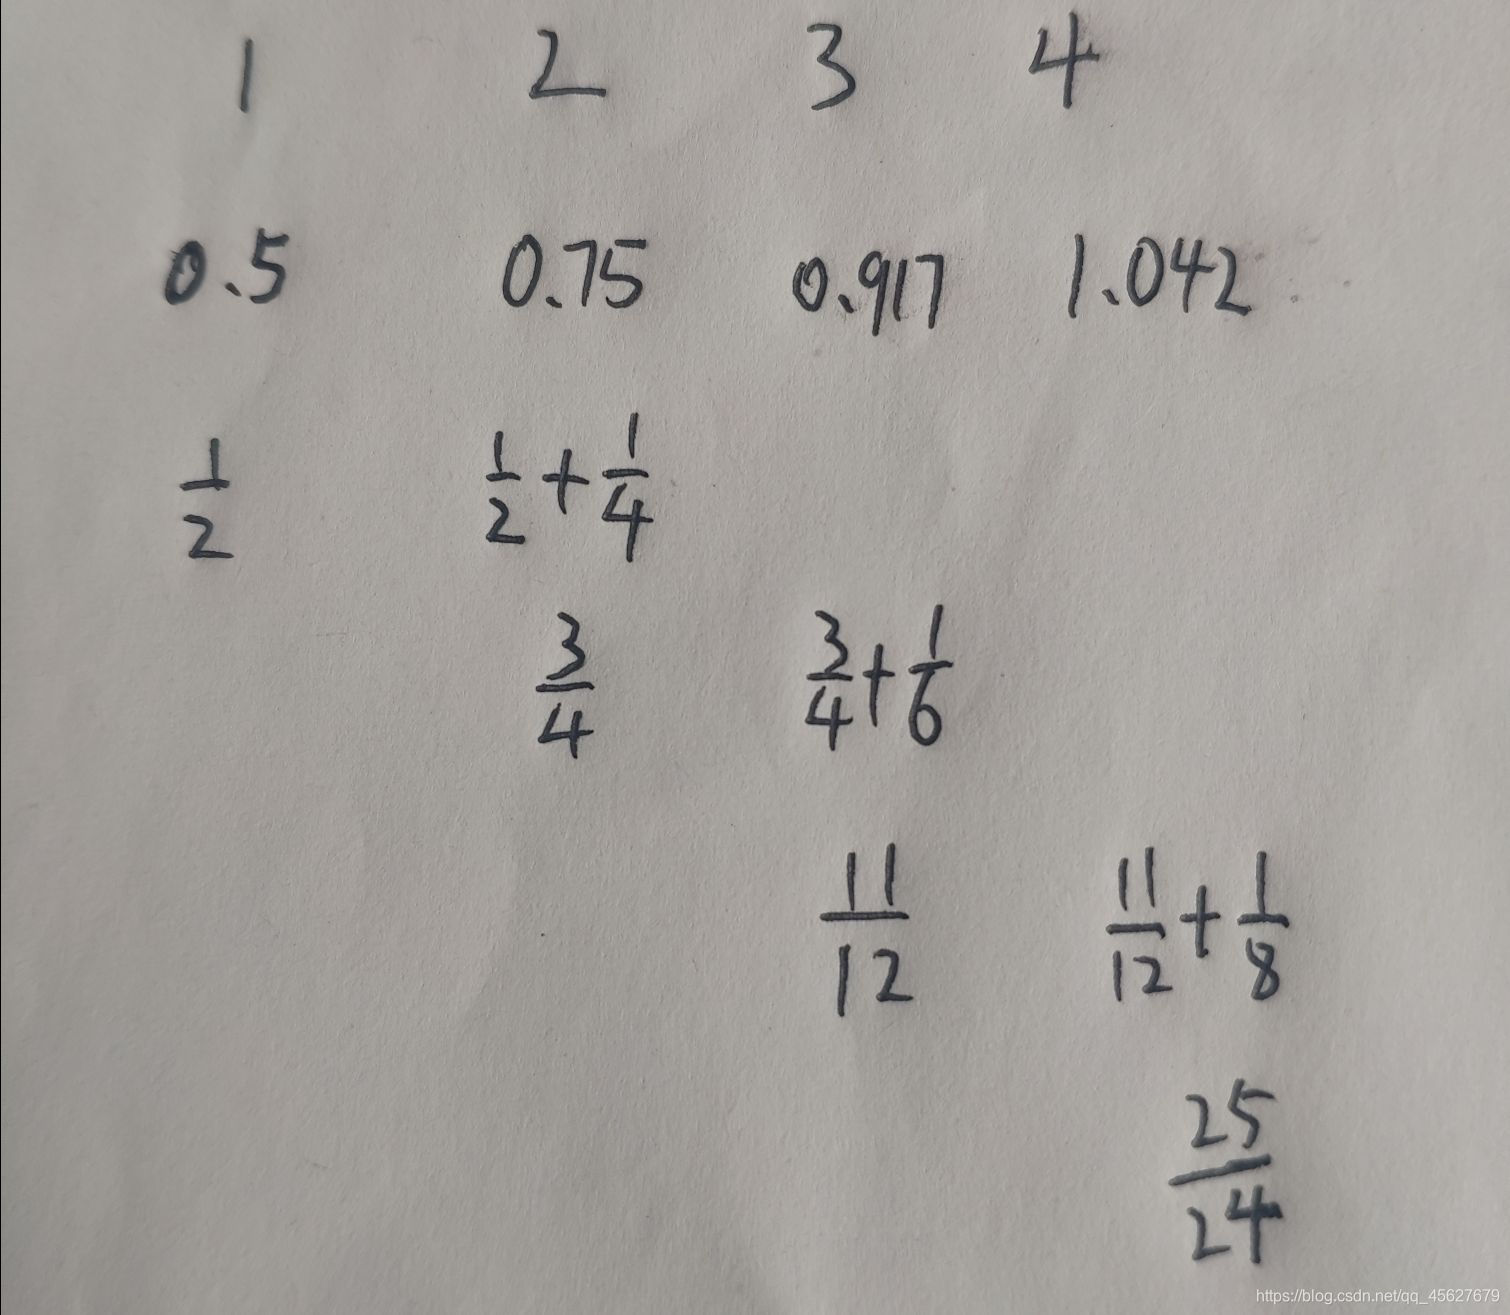 1 2 3 4
0.5 0.75 0.917 1.042
1/2 1/2+1/4
3/4 3/4+1/6
11/12 11/12+1/8
25/24
https://blog.csdn.net/qq_45627679